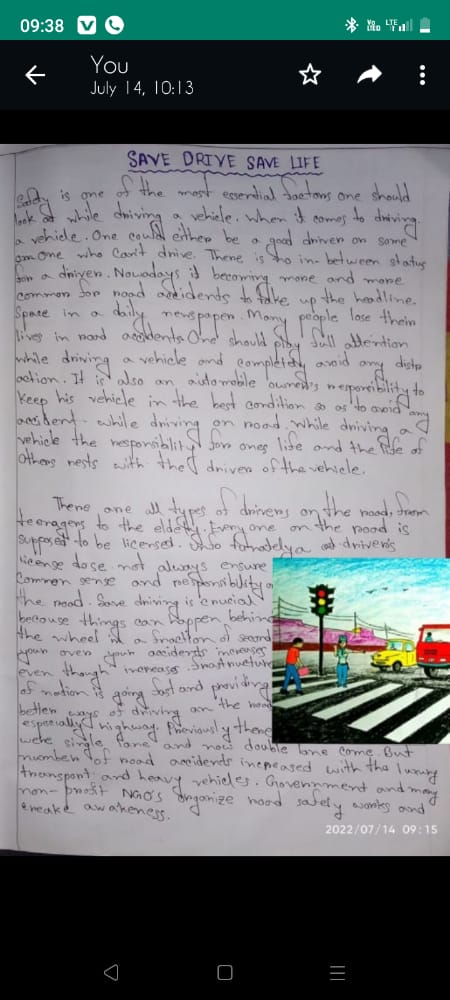 09:38
Vo LTE
LTE
You
July 14, 10:13
SAVE DRIVE SAVE LIFE
Safety is one of the most essential factors one should
look at while driving a vehicle. When it comes to driving
a vehicle. One could either be a good driver or some
one who can't drive. There is no in-between status
for a driver. Nowadays it becoming more and more
common for road accidents to take up the headline.
Space in a daily newspaper. Many people lose their
lives in road accidents. One should play full attention
while driving a vehicle and completely avoid any distr
action. It is also an automobile owner's responsibility to
keep his vehicle in the best condition so as to avoid any
accident while driving on road. While driving a
vehicle the responsibility for ones life and the life of
Others rests with the driver of the vehicle.
There are all types of drivers on the road, from
teenagers to the elderly. Every one on the road is
supposed to be licensed. driver's
license dose not always ensure
Common sense and responsibility
the road. Save driving is crucial
because things can happen behin
the wheel in a fraction of second
your over your accidents increases
even though increases. Infrastructure
of nation is going fast and providing
better ways of driving on the road
especially highway. Previously there
were single lane and now double lane come. But
number of road accidents increased with the luxury
transport and heavy vehicles. Government and many
non-profit NGO's organize road safety works and
create awareness.
2022/07/14 09:15